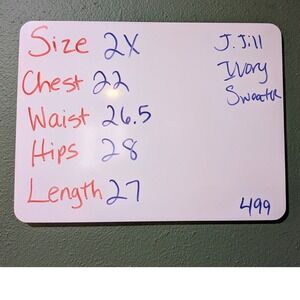 Size 2X
Chest 22
Waist 26.5
Hips 28
Length 27
J.Jill
Ivory
Sweater
499